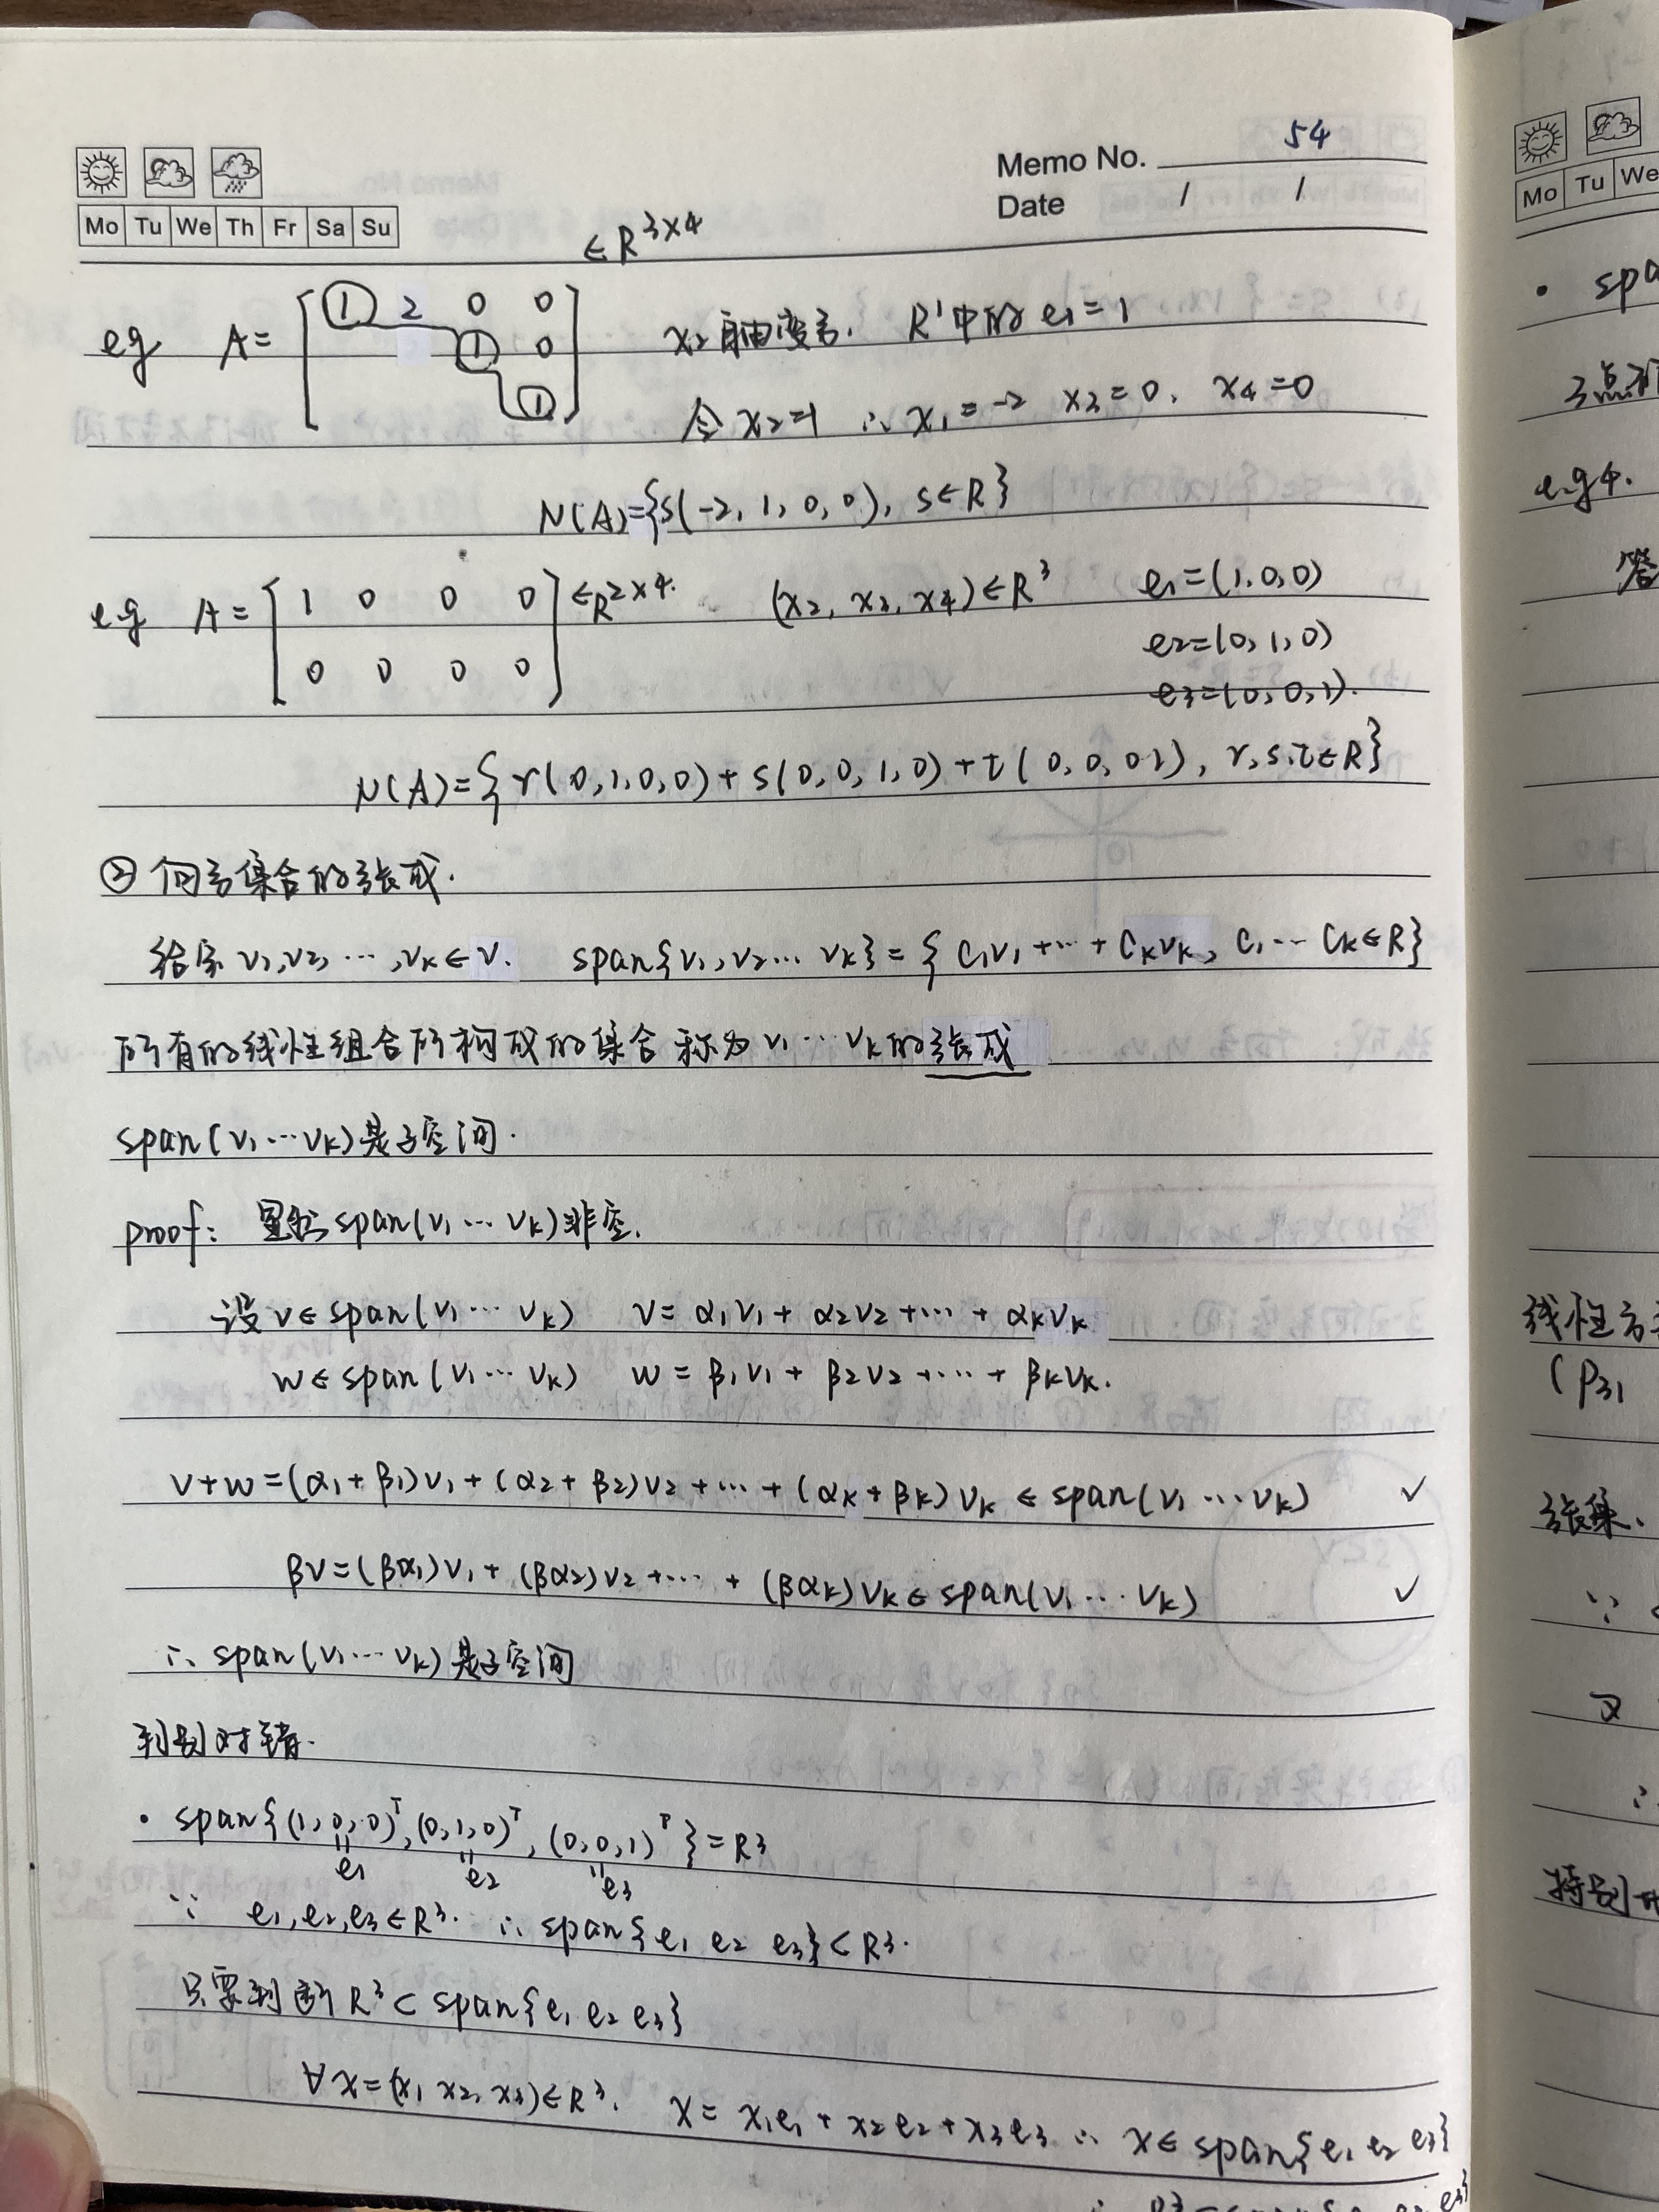 54
Memo No.
Date / /
Mo Tu We Th Fr Sa Su
∈R^{3×4}
eg A= [ 1 2 0 0
1 0
1 ]
x₂自由变言. R¹中的 e₁=1
令x₂=1 ∴x₁=-2 x₃=0. x₄=0
N(A)={s(-2,1,0,0), s∈R}
eg A= [ 1 0 0 0
0 0 0 0 ] ∈R^{2×4}. (x₂,x₃,x₄)∈R³ e₁=(1.0,0)
e₂=(0,1,0)
e₃=(0,0,1).
N(A)={r(0,1,0,0)+s(0,0,1,0)+t(0,0,0,1), r,s,t∈R}
② 向量集合的张成.
给定 v₁,v₂,…,vₖ∈V. span{v₁,v₂…vₖ}={c₁v₁+…+cₖvₖ, c₁…cₖ∈R}
所有的线性组合所构成的集合称为v₁…vₖ的张成
span(v₁…vₖ)是子空间.
proof: 显然span(v₁…vₖ)非空.
设v∈span(v₁…vₖ) v=α₁v₁+α₂v₂+…+αₖvₖ
w∈span(v₁…vₖ) w=β₁v₁+β₂v₂+…+βₖvₖ.
v+w=(α₁+β₁)v₁+(α₂+β₂)v₂+…+(αₖ+βₖ)vₖ∈span(v₁…vₖ) ✓
βv=(βα₁)v₁+(βα₂)v₂+…+(βαₖ)vₖ∈span(v₁…vₖ) ✓
∴span(v₁…vₖ)是子空间
判别对错.
• span{(1,0,0)ᵀ,(0,1,0)ᵀ,(0,0,1)ᵀ}=R³
e₁ e₂ e₃
∵ e₁,e₂,e₃∈R³. ∴span{e₁ e₂ e₃}⊂R³.
只要判断R³⊂span{e₁ e₂ e₃}
∀x=(x₁ x₂,x₃)∈R³. x=x₁e₁+x₂e₂+x₃e₃ ∴x∈span{e₁ e₂ e₃}
Mo Tu We
• spa
e.g4.
答
线性方
(P31
张集.
∵
又
∴
特别